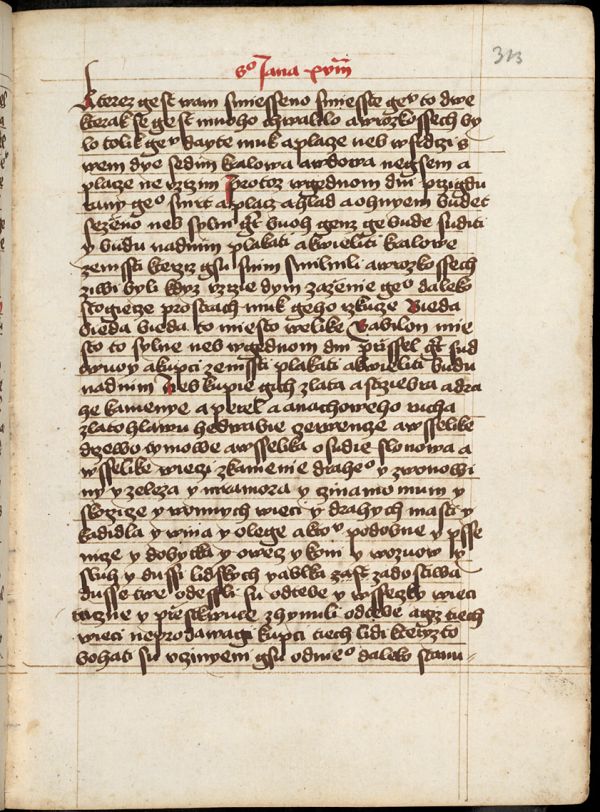 S° Jana xviii
313
kterez gest wam smiesseno smieste geu to dwe
kterak se gest mnoho chwalilo a wrozkossech by
lo tolik geu dayte muk a placze neb w srdczi s
wem dye sedim kralowa a wdowa negsem a
placze ne vzrzim Protoz wgednom dni przigdu
rany geo smrt a placz a hlad a ohnyem budet
sezzeno neb sylny gt buoh genz ge bude suditi
y budu nadnim plakati a kwieliti kralowe
zemssti kterziz gsu snim smilnili a wrozkossech
ziwi byli kdyz vzrzie dym zazzenie geo daleko
stogiecze pro strach muk geho rzkucze Bieda
bieda bieda to miesto welike Babilon mie
sto to sylne neb wgednom dni przissel gt sud
twuoy a kupci zemssti plakati a kwieliti budu
nadnim Neb kupie gich zlata a strziebra a dra
he kamenye a perel a anachoweho rucha
zlatohlawu hedwabie czerwencze a wsselike
drzewo tymowe a wsselika osudie slonowa a
wsselike wieczi zkamenie draheo y zwonowi
ny y zeleza y mramora y cinamomum y
skorzicze y wonnych wieci y drahych masti y
kadidla y wina y olege a ktou podobne y psse
nicze y dobytka y owecz y koni y wozuow y
sluh y dussi lidskych y ablka zast zadostiwa
dusse twe odessli su odtebe y wsseczko wieci
tuczne y piestwucze zhynuli odtebe a giz tiech
wieci neprodawagi kupci tiech lidi kteryzto
bohati su vczinyeni gsu odnieo daleko stanu